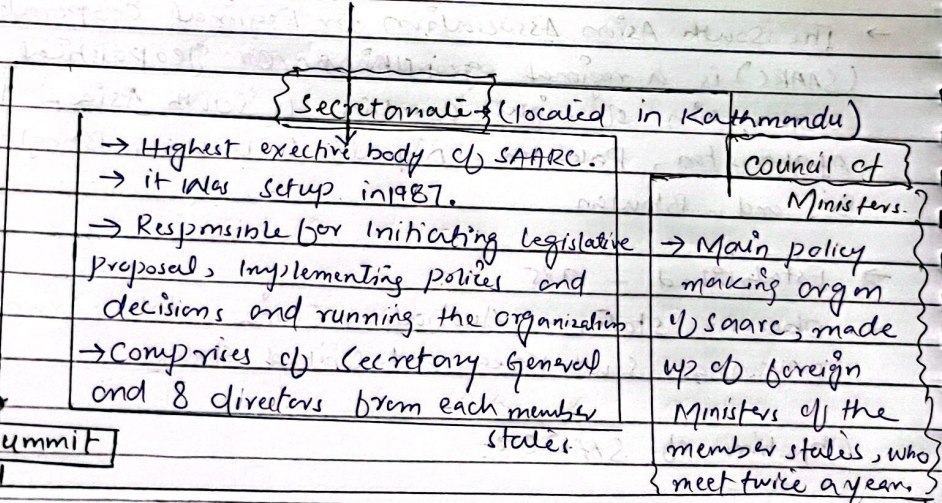 Secretariate (located in Kathmandu)
→ Highest exective body of SAARC.
→ it was setup in 1987.
→ Responsible for initiating legislative
proposal, implementing polices and
decisions and running the organization
→ Comprises of Secretary General
and 8 directors from each member
states.
Council of
Ministers.
→ Main policy
making organ
of saarc, made
up of foreign
Ministers of the
member states, who
meet twice a year.
ummit